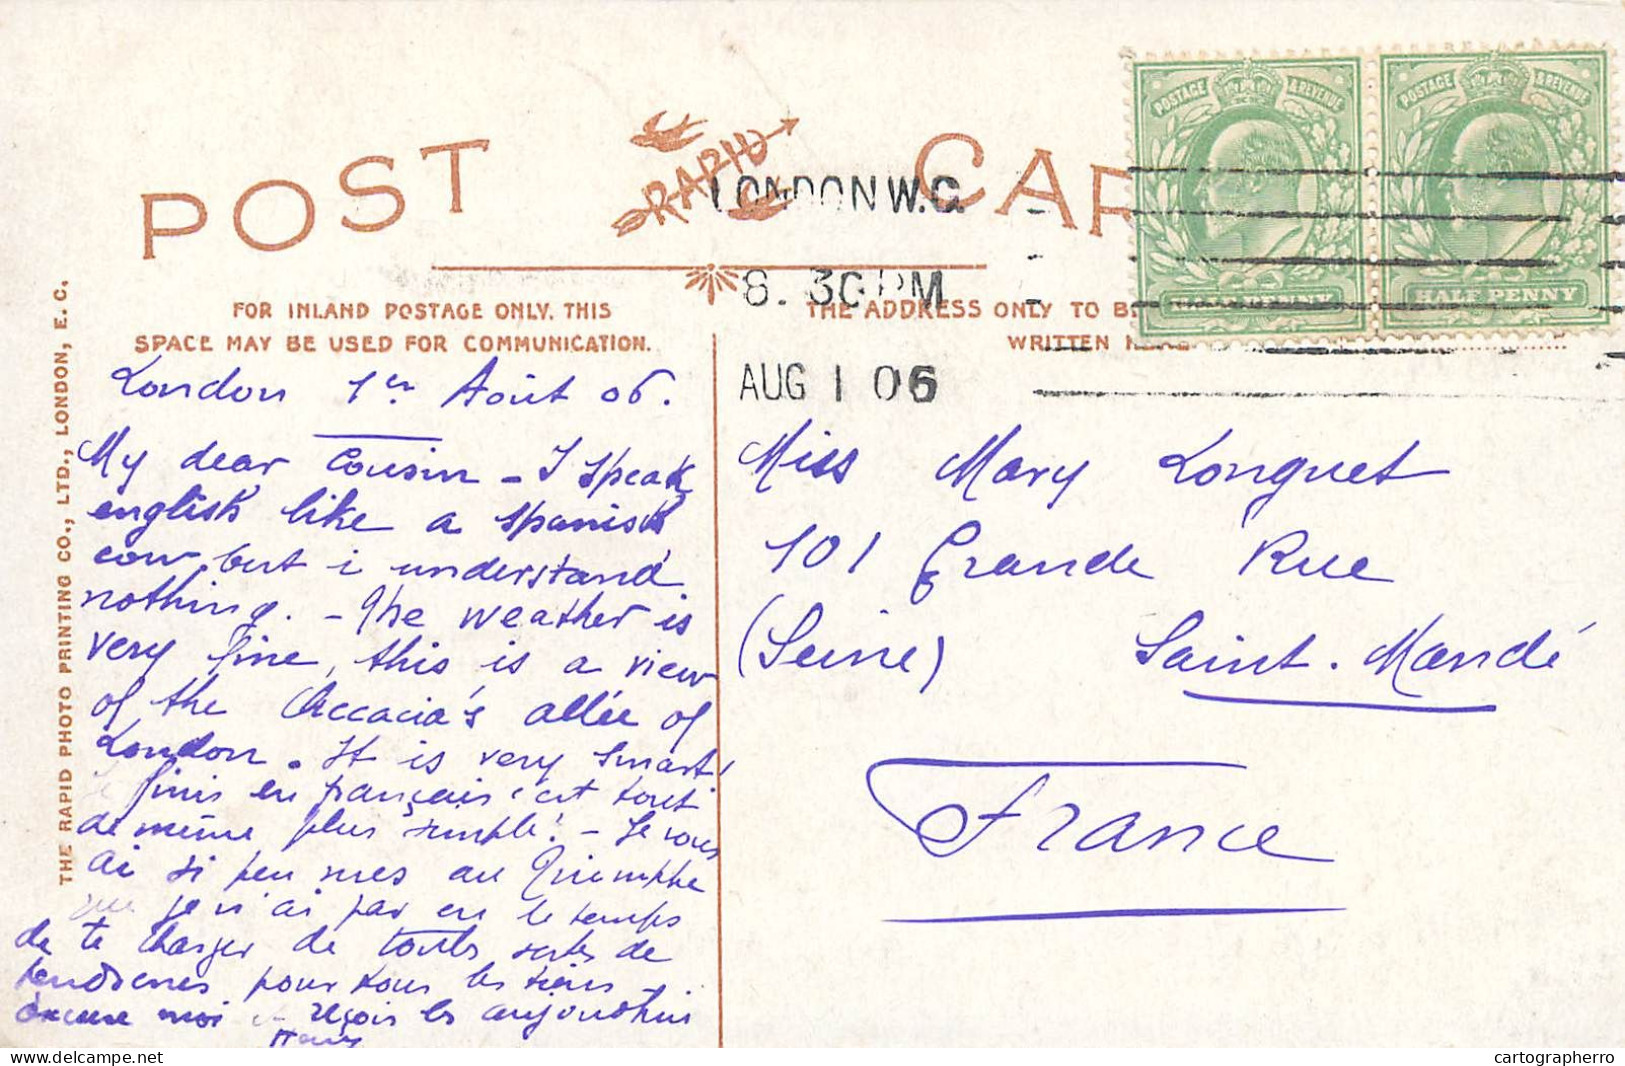 POST CARD
RAPID
LONDON W.C.
8. 30 PM
AUG 1 06
POSTAGE & REVENUE
HALF PENNY
POSTAGE & REVENUE
HALF PENNY
FOR INLAND POSTAGE ONLY. THIS
SPACE MAY BE USED FOR COMMUNICATION.
THE ADDRESS ONLY TO BE
WRITTEN HERE
THE RAPID PHOTO PRINTING CO., LTD., LONDON, E.C.
London 1er Août 06.
My dear cousin - I speak
english like a spanish
cow. but i understand
nothing. - The weather is
very fine, this is a view
of the Accacia's allée of
London. It is very smart!
je finis en français c'est tout
de même plus simple! - Je vous
ai si peu vues au Triomphe
que je n'ai pas eu le temps
de te charger de toutes sortes de
tendresses pour tous les tiens
excuse moi reçois les aujourd'hui
Miss Mary Longuet
101 Grande Rue
(Seine) Saint-Mandé
France
cartographerro